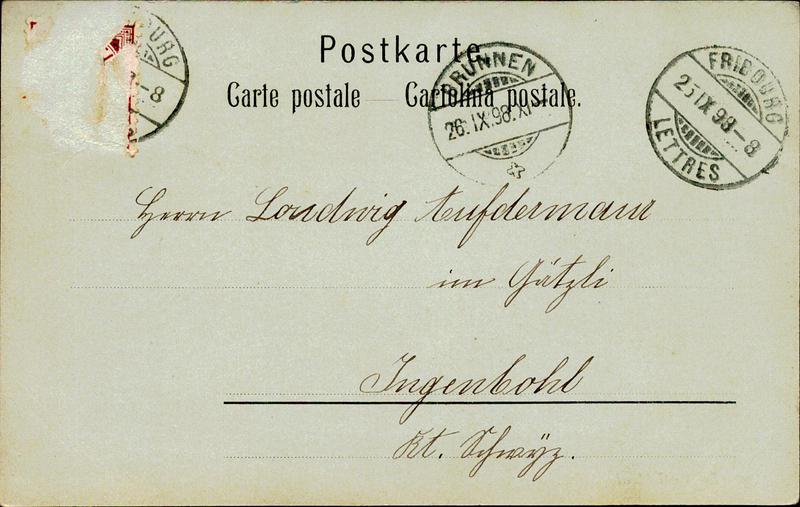 Postkarte
Carte postale — Cartolina postale.
BOURG
-8
BRUNNEN
26.IX.98.XI
FRIBOURG
25 IX 98-8
LETTRES
Herrn Loudwig Aufdermaur
im Gätzli
Ingenbohl
Kt. Schwÿz.